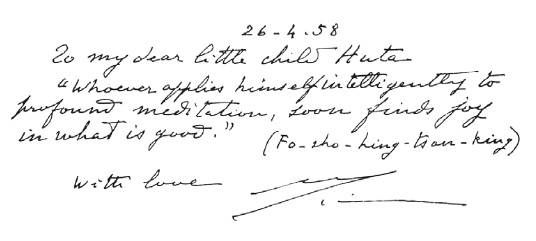 26-4.58
To my dear little child Huta
"Whoever applies himself intelligently to
profound meditation, soon finds joy
in what is good."
(Fo-sho-hing-tsan-king)
With love